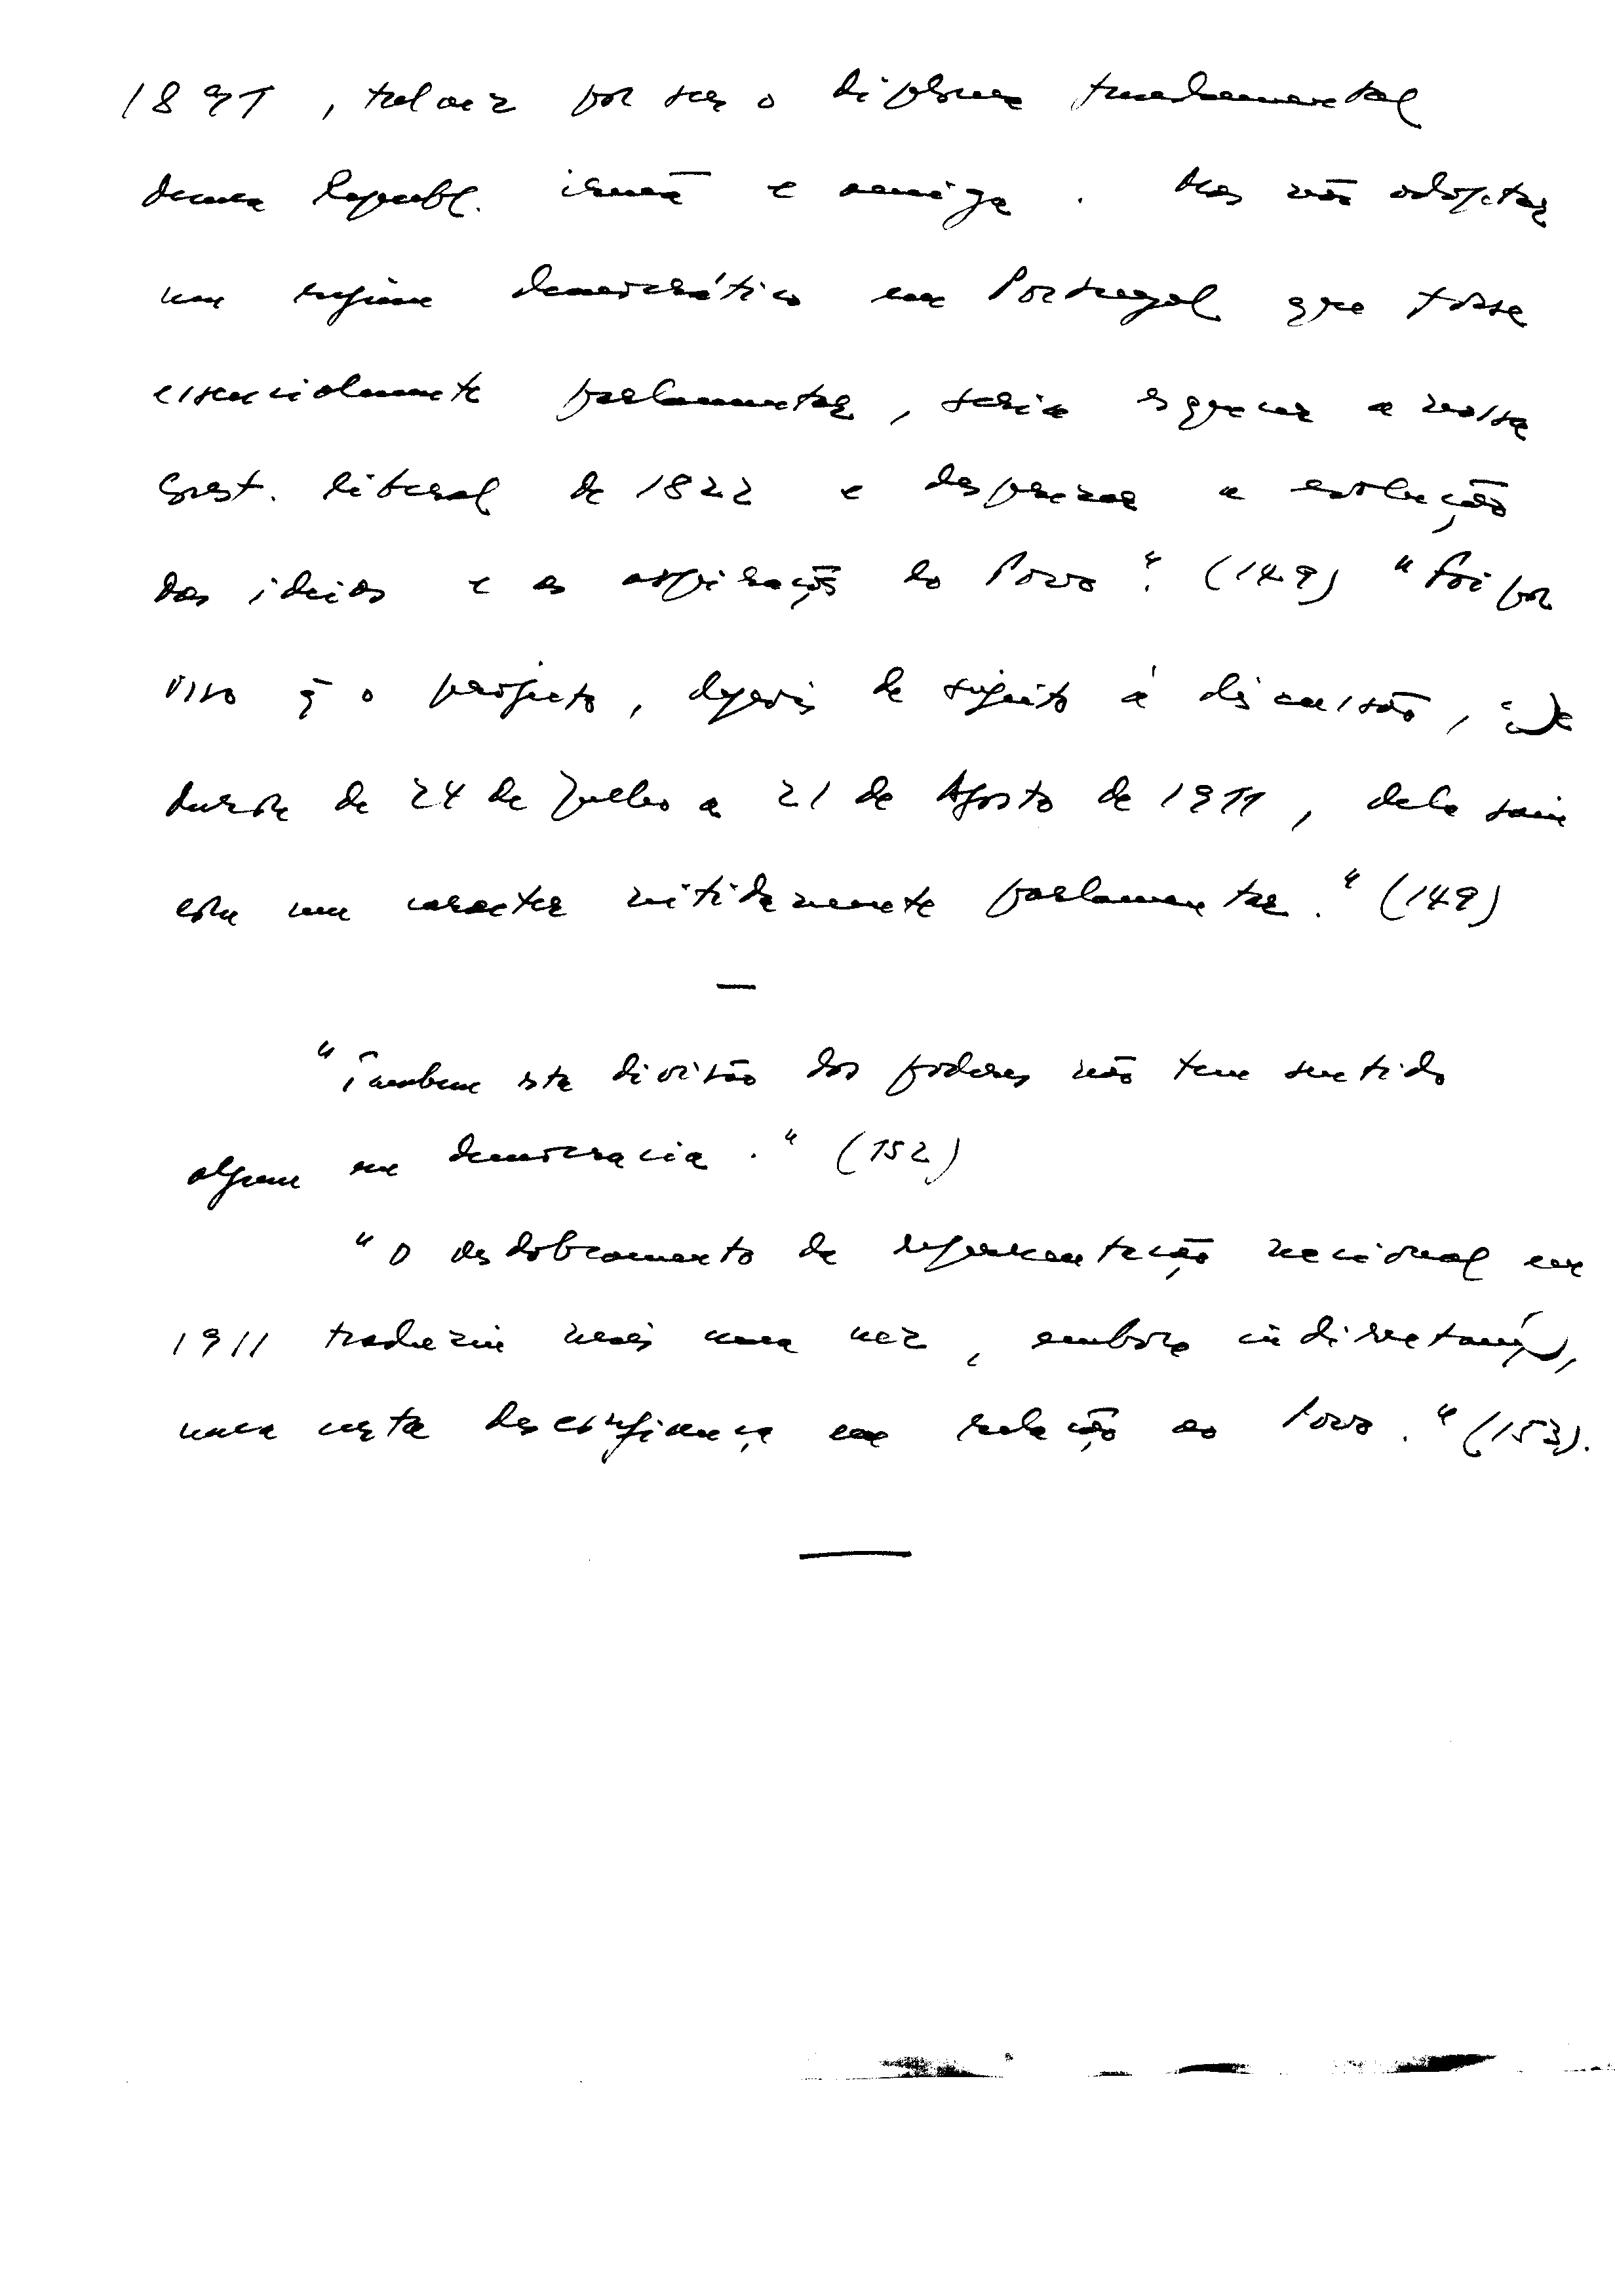 1891, talvez por ser o diploma fundamental
duma Republ. irmã e amiga. Mas não adoptar
um regime democrático em Portugal que fosse
essencialmente parlamentar, seria esquecer a nossa
Const. liberal de 1822 e desprezar a evolução
das ideias e as aspirações do Povo". (149) "Foi por
isso q̃ o projecto, depois de sujeito à discussão,
durante de 24 de Julho a 21 de Agosto de 1911, dela saiu
com um caracter nitidamente parlamentar." (149)
—
"Também esta divisão dos poderes não tem sentido
algum em democracia." (152)
"O desdobramento da representação nacional em
1911 traduziu mais uma vez, embora indirectam/,
uma certa desconfiança em relação ao Povo." (153).